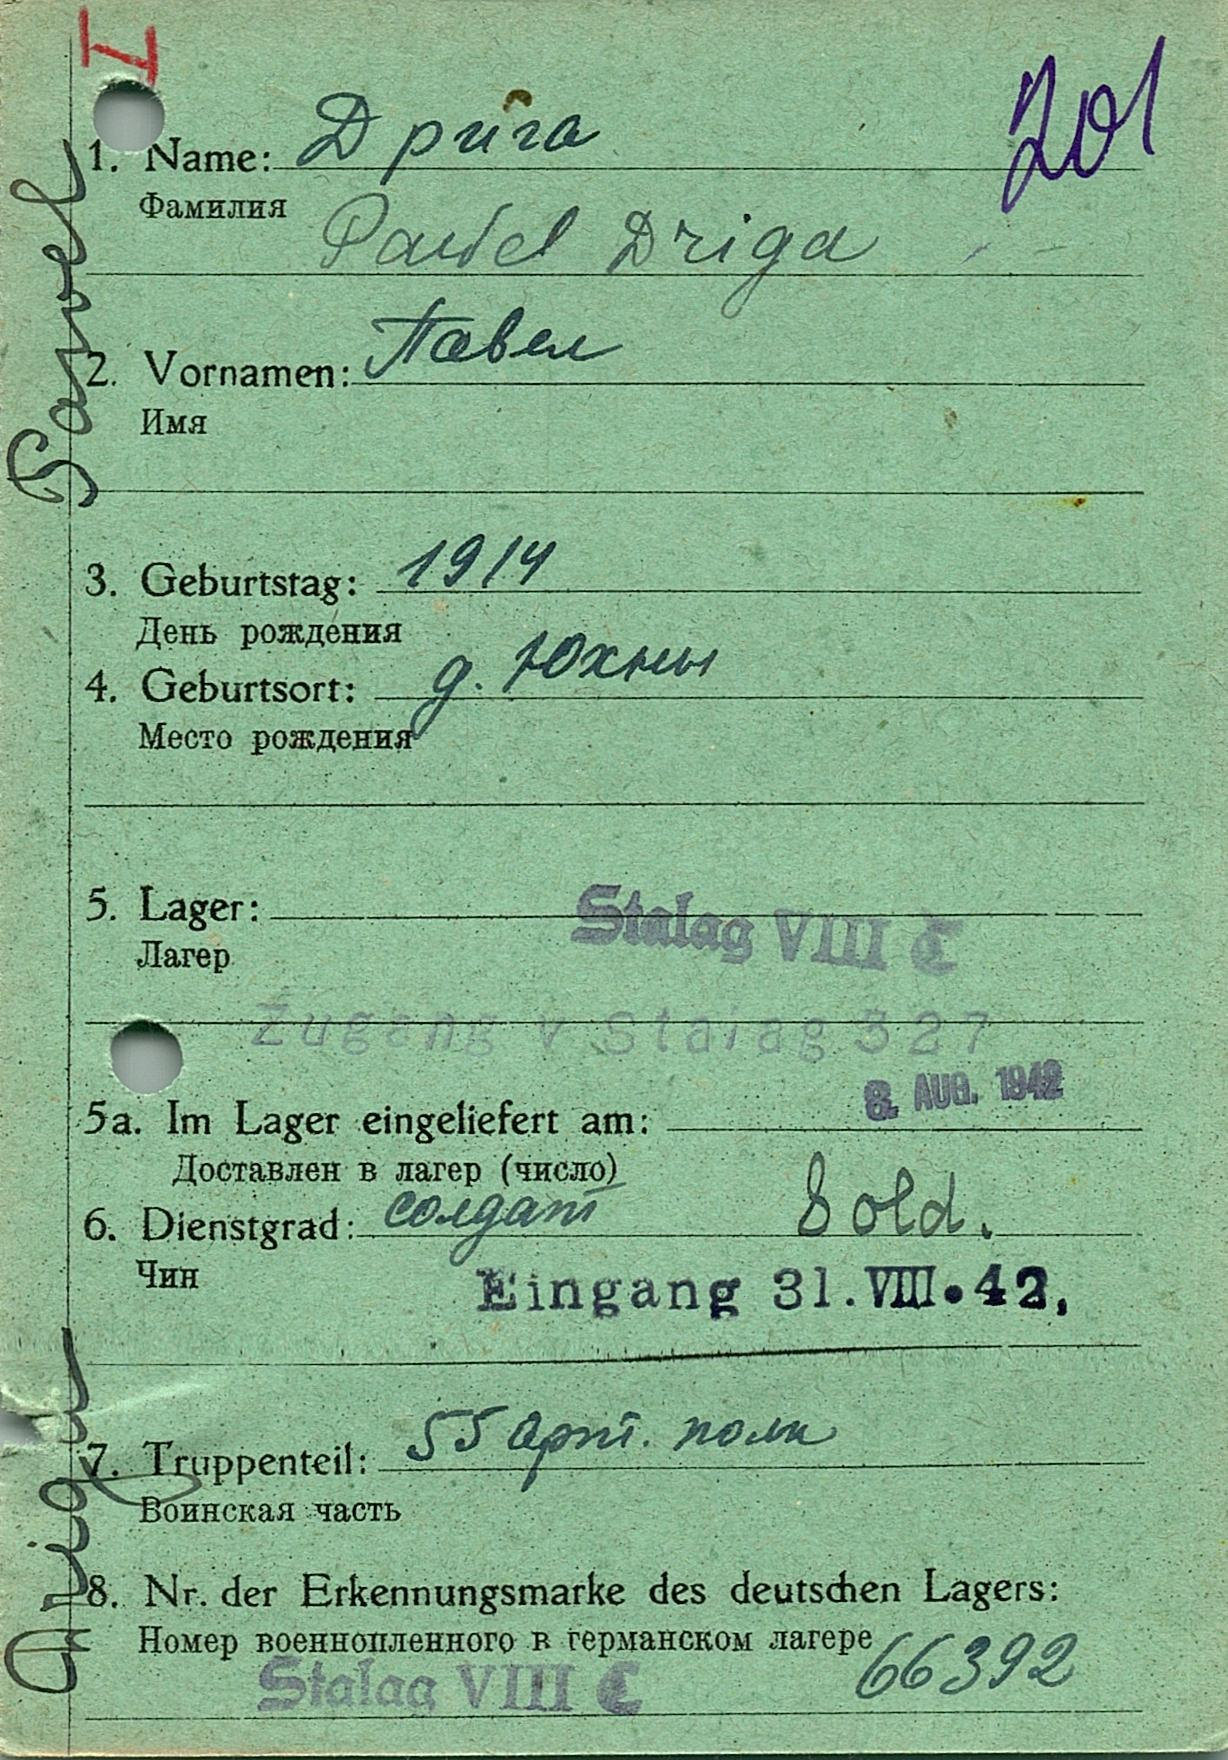 I
201
1. Name: Дрига
Фамилия
Pawel Driga
2. Vornamen: Павел
Имя
3. Geburtstag: 1914
День рождения
4. Geburtsort: д. Юхны
Место рождения
5. Lager: Stalag VIII C
Лагер
Zugang v Stalag 327
8. AUG. 1942
5a. Im Lager eingeliefert am:
Доставлен в лагер (число)
6. Dienstgrad: солдат Sold.
Чин
Eingang 31.VIII.42.
7. Truppenteil: 55 арт. полк
Воинская часть
8. Nr. der Erkennungsmarke des deutschen Lagers:
Номер военнопленного в германском лагере 66392
Stalag VIII C
Driga Pawel